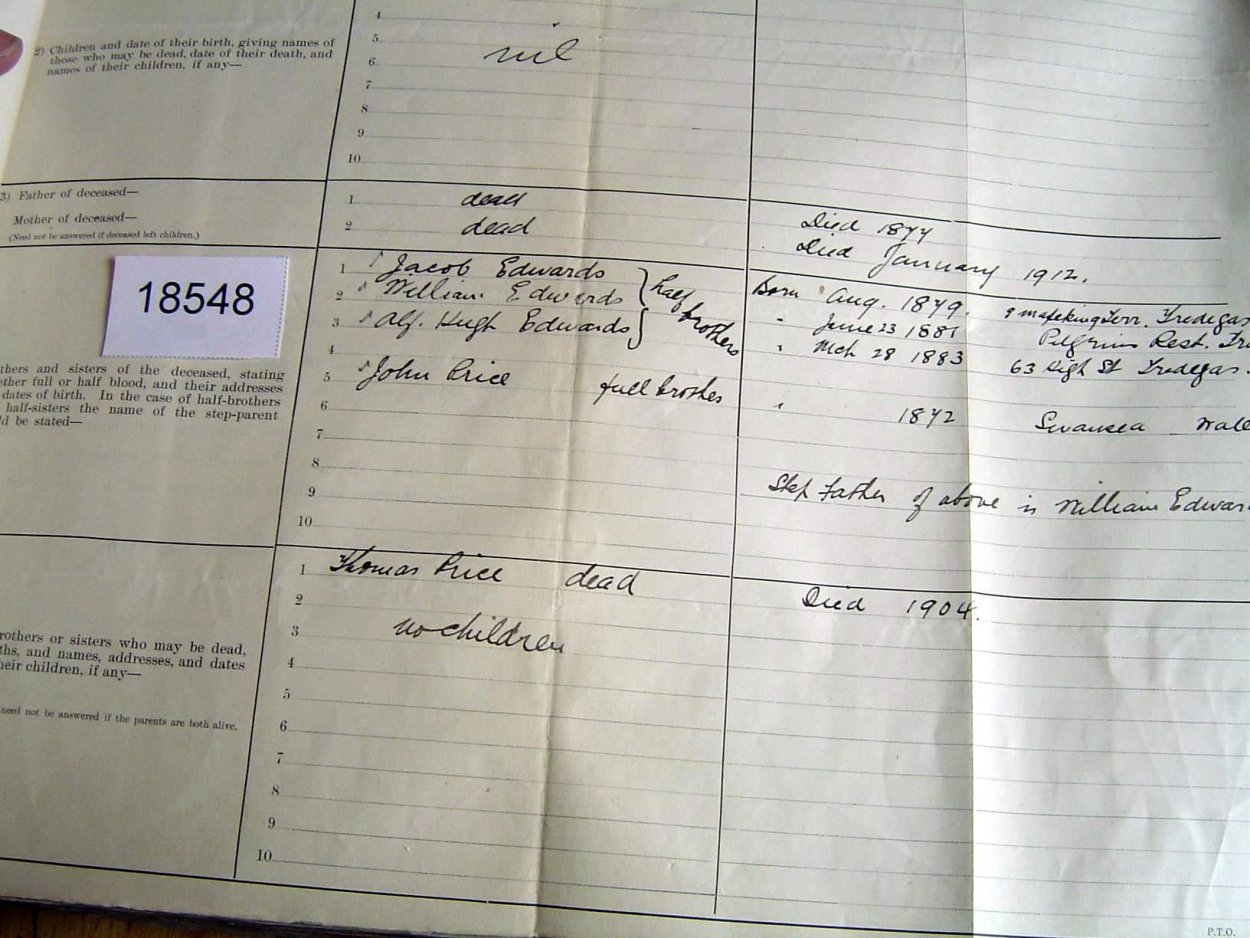 4
5
6
7
8
9
10
2) Children and date of their birth, giving names of
those who may be dead, date of their death, and
names of their children, if any—
nil
3) Father of deceased—
1 dead
Died 1877
Mother of deceased—
2 dead
Died January 1912.
(Need not be answered if deceased left children.)
18548
1 Jacob Edwards
half brothers
Born Aug. 1879. 9 Mafeking Terr. Tredegar
2 William Edwards
" June 23 1881 Pilgrims Rest.
3 Alf. Hugh Edwards
" Mch 28 1883 63 High St Tredegar.
4
5 John Price full brother
" 1872 Swansea Wale
6
7
8
9
10
thers and sisters of the deceased, stating
ether full or half blood, and their addresses
dates of birth. In the case of half-brothers
half-sisters the name of the step-parent
ld be stated—
Step Father of above is William Edwar
1 Thomas Price dead
Died 1904.
2
3 no children
4
5
6
7
8
9
10
rothers or sisters who may be dead,
ths, and names, addresses, and dates
heir children, if any—
need not be answered if the parents are both alive.
P.T.O.